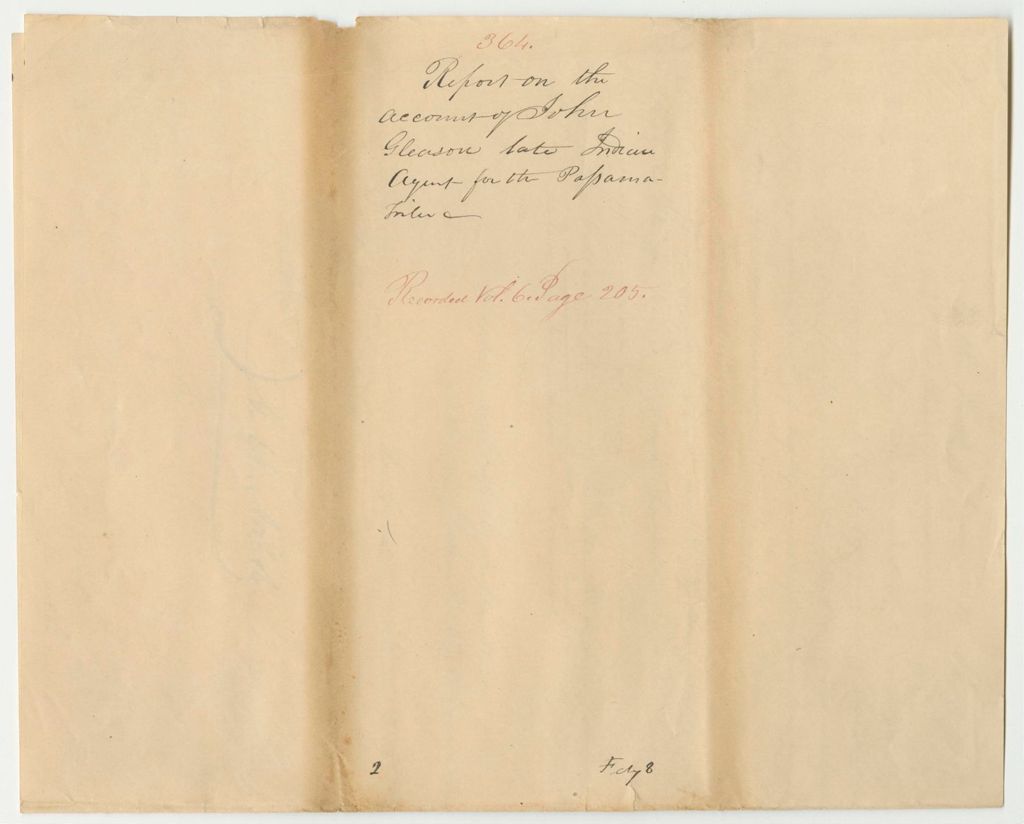 364.
Report on the
account of John
Gleason late Indian
Agent for the Passama-
Tribe &
Recorded Vol. 6. Page 205.
2 Feby 8